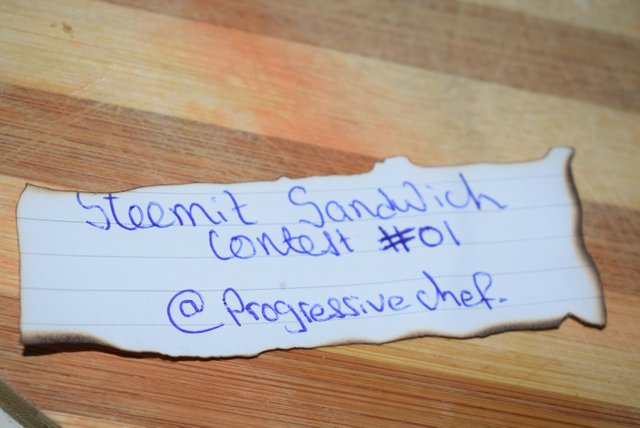 Steemit Sandwich
Contest #01
@Progressivechef.